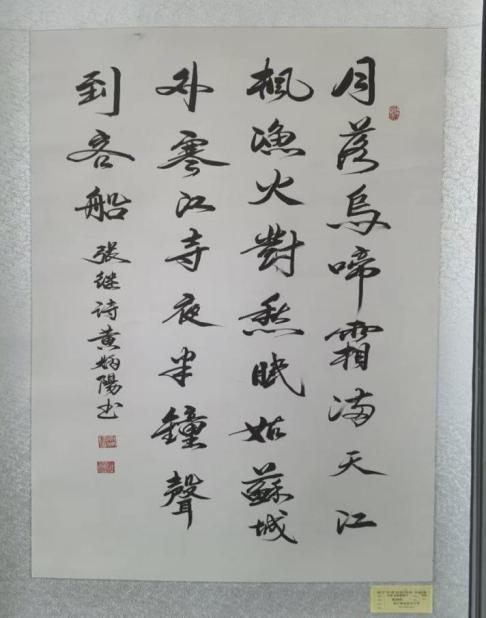 月落烏啼霜满天江
枫漁火對愁眠姑蘇城
外寒江寺夜半鐘聲
到客船 張继诗黄炳陽书